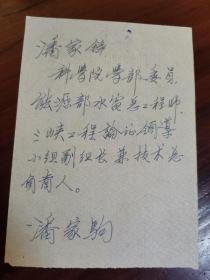 潘家铮
科学院学部委员
能源部水電总工程师
三峡工程論证領導
小组副组长兼技术总
負責人。
潘家駒